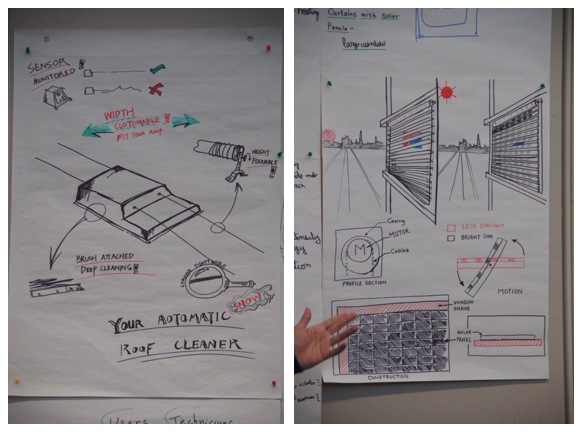 SENSOR
MONITORED
WIDTH
CUSTOMABLE
FIT YOUR ROOF
HEIGHT
FLEXIBLE
BRUSH ATTACHED
DEEP CLEANING
STRONG TIGHTWIRE
SNOW
YOUR AOTOMATIC
ROOF CLEANER
Users Technicians
Curtains with Solar
Panels -
Large window
Casing
MOTOR
M
Cables
PROFILE SECTION
LESS SUNLIGHT
BRIGHT SUN
MOTION
WOODEN
FRAME
SOLAR
PANEL
CONSTRUCTION